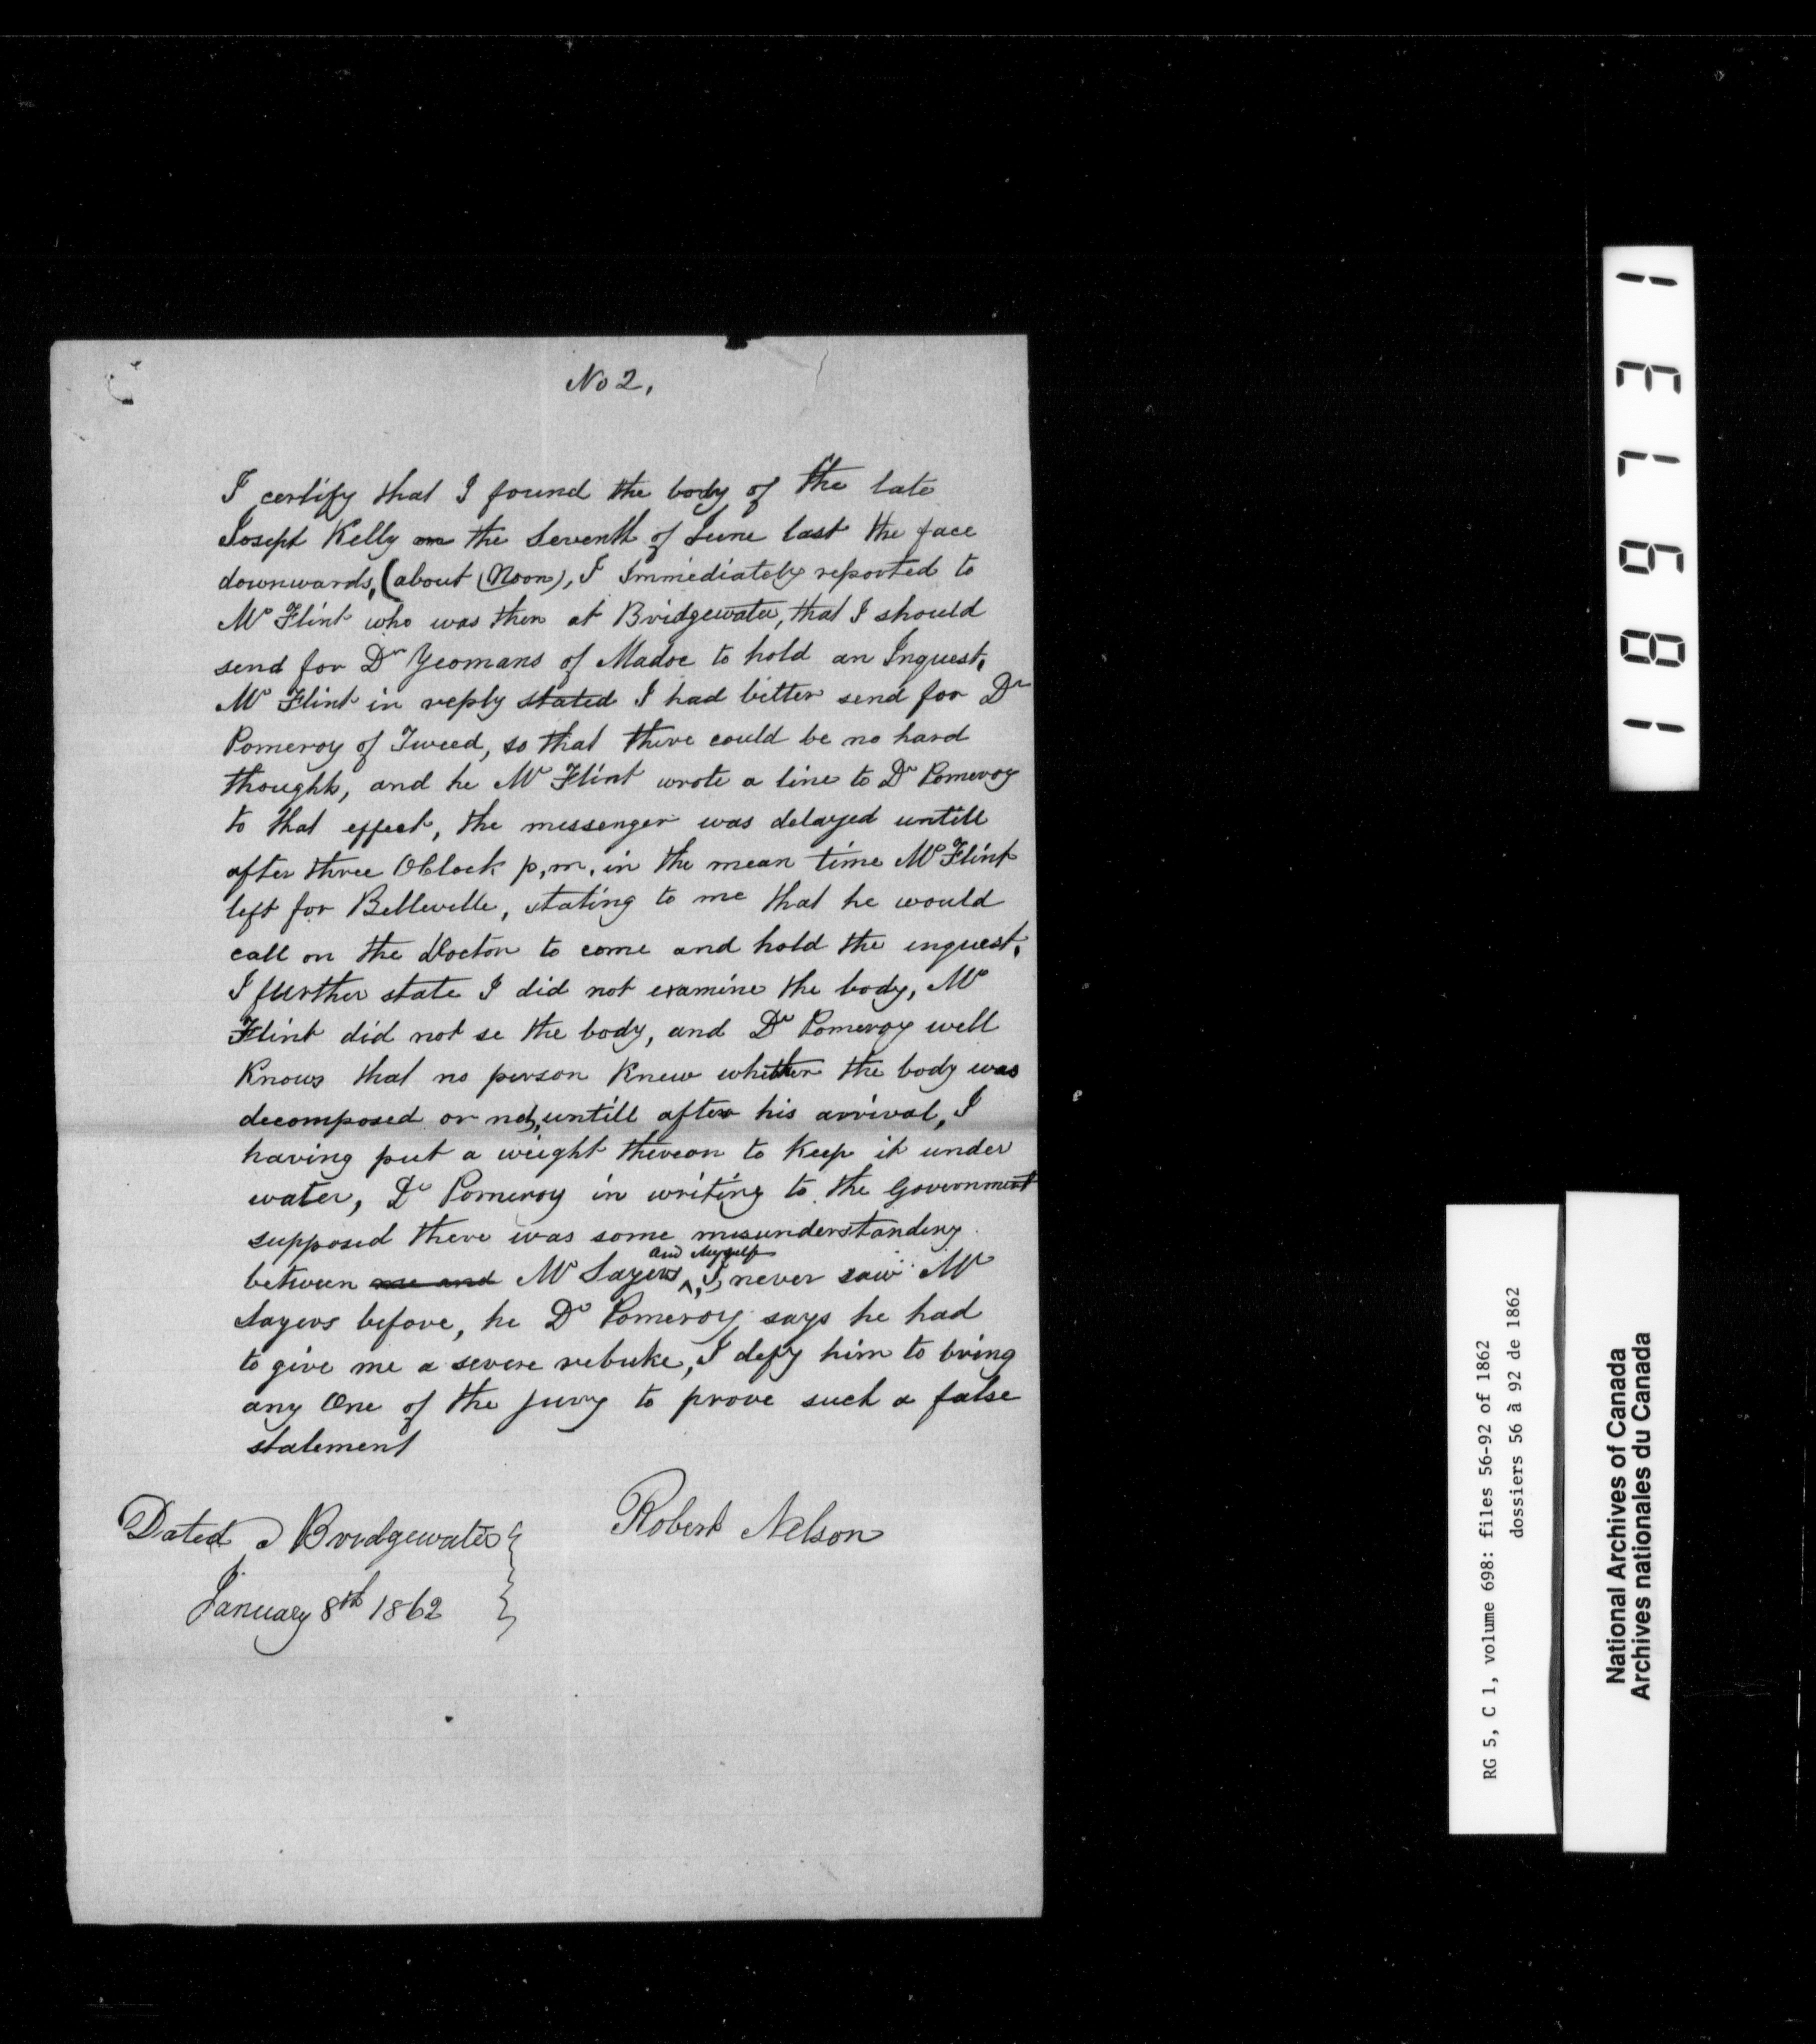 No 2,
I certify that I found the body of the late
Joseph Kelly on the Seventh of June last the face
downwards, (about (Noon), I Immediately reported to
Mr Flint who was then at Bridgewater, that I should
send for Dr Yeomans of Madoc to hold an Inquest,
Mr Flint in reply stated I had better send for Dr
Pomeroy of Tweed, so that there could be no hard
thoughts, and he Mr Flint wrote a line to Dr Pomeroy
to that effect, the messenger was delayed untill
after three OClock p,m, in the mean time Mr Flint
left for Belleville, stating to me that he would
call on the Doctor to come and hold the inquest,
I further state I did not examine the body, Mr
Flint did not se the body, and Dr Pomeroy well
Knows that no person Knew whether the body was
decomposed or not, untill after his arrival, I
having put a weight thereon to Keep it under
water, Dr Pomeroy in writing to the Government
supposed there was some misunderstanding
between me and Mr Sayers and Myself, I never saw Mr
Sayers before, he Dr Pomeroy says he had
to give me a severe rebuke, I defy him to bring
any One of the jury to prove such a false
statement
Robert Nelson
Dated a Bridgewater
January 8th 1862
1 8 6 7 3 1
RG 5, C 1, volume 698: files 56-92 of 1862
dossiers 56 à 92 de 1862
National Archives of Canada
Archives nationales du Canada